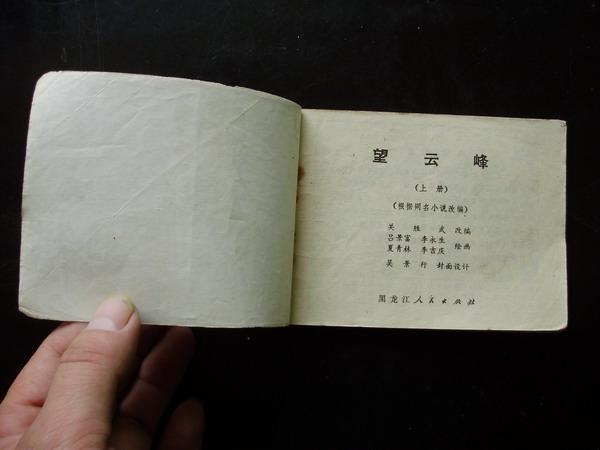 望云峰
(上册)
(根据同名小说改编)
关胜武 改编
吕景富 李永生
夏青林 李吉庆 绘画
吴景行 封面设计
黑龙江人民出版社